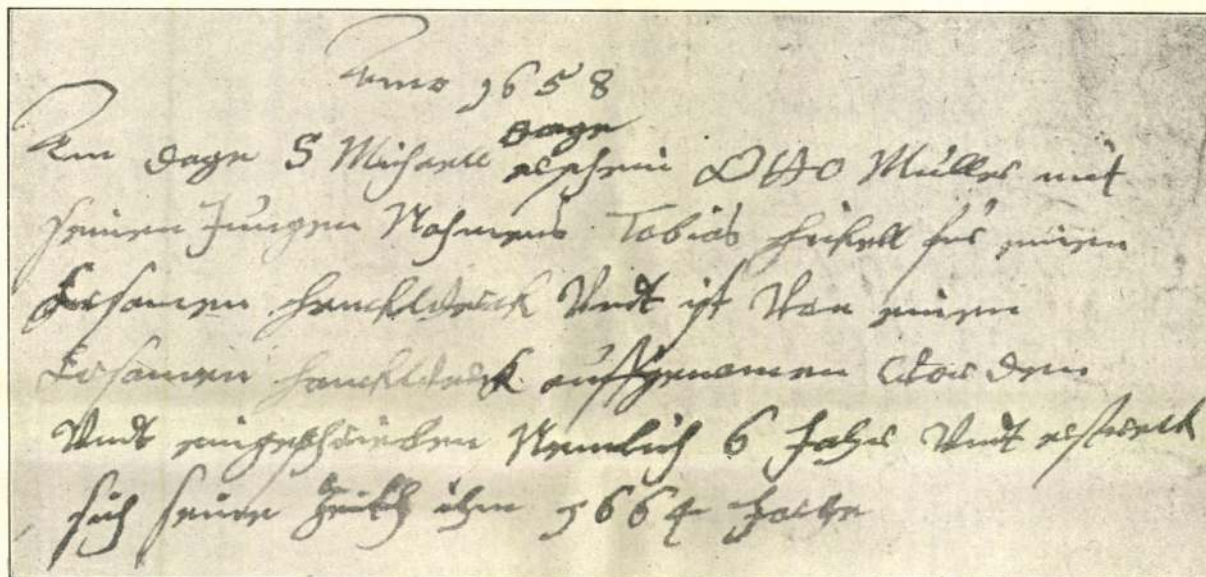 Anno 1658
dage
Am dage S Michaell erschein Otto Müller mit
seinen Jungen Nahmens Tobias hickell für einen
Ersamen handtwerk Undt ist Von einen
Ersamen handtwerk auffgenomen worden
Undt eingeschrieben Nemlich 6 Jahr Undt erstreck
sich seine Zeitt ihm 1664 Jahre